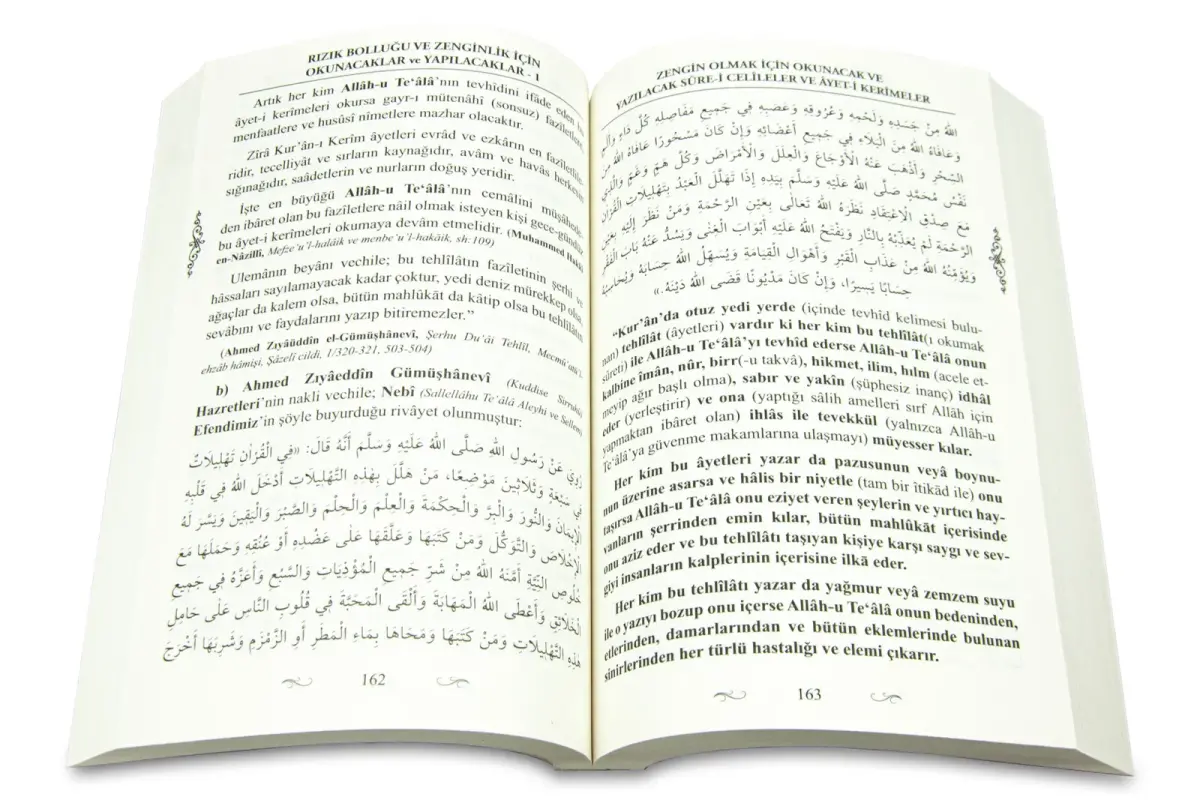 RIZIK BOLLUĞU VE ZENGİNLİK İÇİN
OKUNACAKLAR ve YAPILACAKLAR - I
Artık her kim Allâh-u Te‘âlâ’nın tevhîdini ifâde eden
âyet-i kerîmeleri okursa gayr-ı mütenâhî (sonsuz) fazîletlere,
menfaatlere ve husûsî nîmetlere mazhar olacaktır.
Zîrâ Kur’ân-ı Kerîm âyetleri evrâd ve ezkârın en fazîletlile-
ridir, tecelliyât ve sırların kaynağıdır, avâm ve havâs herkesin
sığınağıdır, saâdetlerin ve nurların doğuş yeridir.
İşte en büyüğü Allâh-u Te‘âlâ’nın cemâlini müşâhede-
den ibâret olan bu fazîletlere nâil olmak isteyen kişi gece-gündüz
bu âyet-i kerîmeleri okumaya devâm etmelidir. (Muhammed Hakkî
en-Nâzillî, Mefze‘u’l-halâik ve menbe‘u’l-hakâik, sh:109)
Ulemânın beyânı vechile; bu tehlîlâtın fazîletinin şerhi ve
hâssaları sayılamayacak kadar çoktur, yedi deniz mürekkep olsa,
ağaçlar da kalem olsa, bütün mahlûkāt da kâtip olsa bu tehlîlâtın
sevâbını ve faydalarını yazıp bitiremezler.”
(Ahmed Zıyâüddîn el-Gümüşhânevî, Şerhu Du‘âi Tehlîl, Mecmû‘atü’l-
ehzâb hâmişi, Şâzelî cildi, 1/320-321, 503-504)
b) Ahmed Zıyâeddîn Gümüşhânevî (Kuddise Sirruhû)
Hazretleri’nin nakli vechile; Nebî (Sallellâhu Te‘âlâ Aleyhi ve Sellem)
Efendimiz’in şöyle buyurduğu rivâyet olunmuştur:
رُوِيَ عَنْ رَسُولِ اللهِ صَلَّى اللهُ عَلَيْهِ وَسَلَّمَ أَنَّهُ قَالَ: «فِي الْقُرْاٰنِ تَهْلِيلَاتٌ
فِي سَبْعَةٍ وَثَلَاثِينَ مَوْضِعًا، مَنْ هَلَّلَ بِهٰذِهِ التَّهْلِيلَاتِ أَدْخَلَ اللهُ فِي قَلْبِهِ
الْإِيمَانَ وَالنُّورَ وَالْبِرَّ وَالْحِكْمَةَ وَالْعِلْمَ وَالْحِلْمَ وَالصَّبْرَ وَالْيَقِينَ وَيَسَّرَ لَهُ
الْإِخْلَاصَ وَالتَّوَكُّلَ وَمَنْ كَتَبَهَا وَعَلَّقَهَا عَلَى عَضُدِهِ أَوْ عُنُقِهِ وَحَمَلَهَا مَعَ
خُلُوصِ النِّيَّةِ أَمَّنَهُ اللهُ مِنْ شَرِّ جَمِيعِ الْمُؤْذِيَاتِ وَالسَّبُعِ وَأَعَزَّهُ فِي جَمِيعِ
الْخَلَائِقِ وَأَعْطَى اللهُ الْمَهَابَةَ وَأَلْقَى الْمَحَبَّةَ فِي قُلُوبِ النَّاسِ عَلَى حَامِلِ
هٰذِهِ التَّهْلِيلَاتِ وَمَنْ كَتَبَهَا وَمَحَاهَا بِمَاءِ الْمَطَرِ أَوِ الزَّمْزَمِ وَشَرِبَهَا أَخْرَجَ
162
ZENGİN OLMAK İÇİN OKUNACAK VE
YAZILACAK SÛRE-İ CELÎLELER VE ÂYET-İ KERÎMELER
اللهُ مِنْ جَسَدِهِ وَلَحْمِهِ وَعُرُوقِهِ وَعَصَبِهِ فِي جَمِيعِ مَفَاصِلِهِ كُلَّ دَاءٍ وَأَلَمٍ
وَعَافَاهُ اللهُ مِنَ الْبَلَاءِ فِي جَمِيعِ أَعْضَائِهِ وَإِنْ كَانَ مَسْحُورًا عَافَاهُ اللهُ مِنَ
السِّحْرِ وَأَذْهَبَ عَنْهُ الْأَوْجَاعَ وَالْعِلَلَ وَالْأَمْرَاضَ وَكُلَّ هَمٍّ وَغَمٍّ وَالَّذِي
نَفْسُ مُحَمَّدٍ صَلَّى اللهُ عَلَيْهِ وَسَلَّمَ بِيَدِهِ إِذَا تَهَلَّلَ الْعَبْدُ بِتَهْلِيلَاتِ الْقُرْاٰنِ
مَعَ صِدْقِ الْاِعْتِقَادِ نَظَرَهُ اللهُ تَعَالَى بِعَيْنِ الرَّحْمَةِ وَمَنْ نَظَرَ إِلَيْهِ بِعَيْنِ
الرَّحْمَةِ لَمْ يُعَذِّبْهُ بِالنَّارِ وَيَفْتَحُ اللهُ عَلَيْهِ أَبْوَابَ الْغِنَى وَيَسُدُّ عَنْهُ بَابَ الْفَقْرِ
وَيُؤَمِّنُهُ اللهُ مِنْ عَذَابِ الْقَبْرِ وَأَهْوَالِ الْقِيَامَةِ وَيُسَهِّلُ اللهُ حِسَابَهُ وَيُحَاسِبُهُ
حِسَابًا يَسِيرًا، وَإِنْ كَانَ مَدْيُونًا قَضَى اللهُ دَيْنَهُ.»
“Kur’ân’da otuz yedi yerde (içinde tevhîd kelimesi bulu-
nan) tehlîlât (âyetleri) vardır ki her kim bu tehlîlât(ı okumak
sûreti) ile Allâh-u Te‘âlâ’yı tevhîd ederse Allâh-u Te‘âlâ onun
kalbine îmân, nûr, birr(-u takvâ), hikmet, ilim, hılm (acele et-
meyip ağır başlı olma), sabır ve yakîn (şüphesiz inanç) idhâl
eder (yerleştirir) ve ona (yaptığı sâlih amelleri sırf Allâh için
yapmaktan ibâret olan) ihlâs ile tevekkül (yalnızca Allâh-u
Te‘âlâ’ya güvenme makamlarına ulaşmayı) müyesser kılar.
Her kim bu âyetleri yazar da pazusunun veyâ boynu-
nun üzerine asarsa ve hâlis bir niyetle (tam bir îtikād ile) onu
taşırsa Allâh-u Te‘âlâ onu eziyet veren şeylerin ve yırtıcı hay-
vanların şerrinden emin kılar, bütün mahlûkāt içerisinde
onu aziz eder ve bu tehlîlâtı taşıyan kişiye karşı saygı ve sev-
giyi insanların kalplerinin içerisine ilkā eder.
Her kim bu tehlîlâtı yazar da yağmur veyâ zemzem suyu
ile o yazıyı bozup onu içerse Allâh-u Te‘âlâ onun bedeninden,
etlerinden, damarlarından ve bütün eklemlerinde bulunan
sinirlerinden her türlü hastalığı ve elemi çıkarır.
163